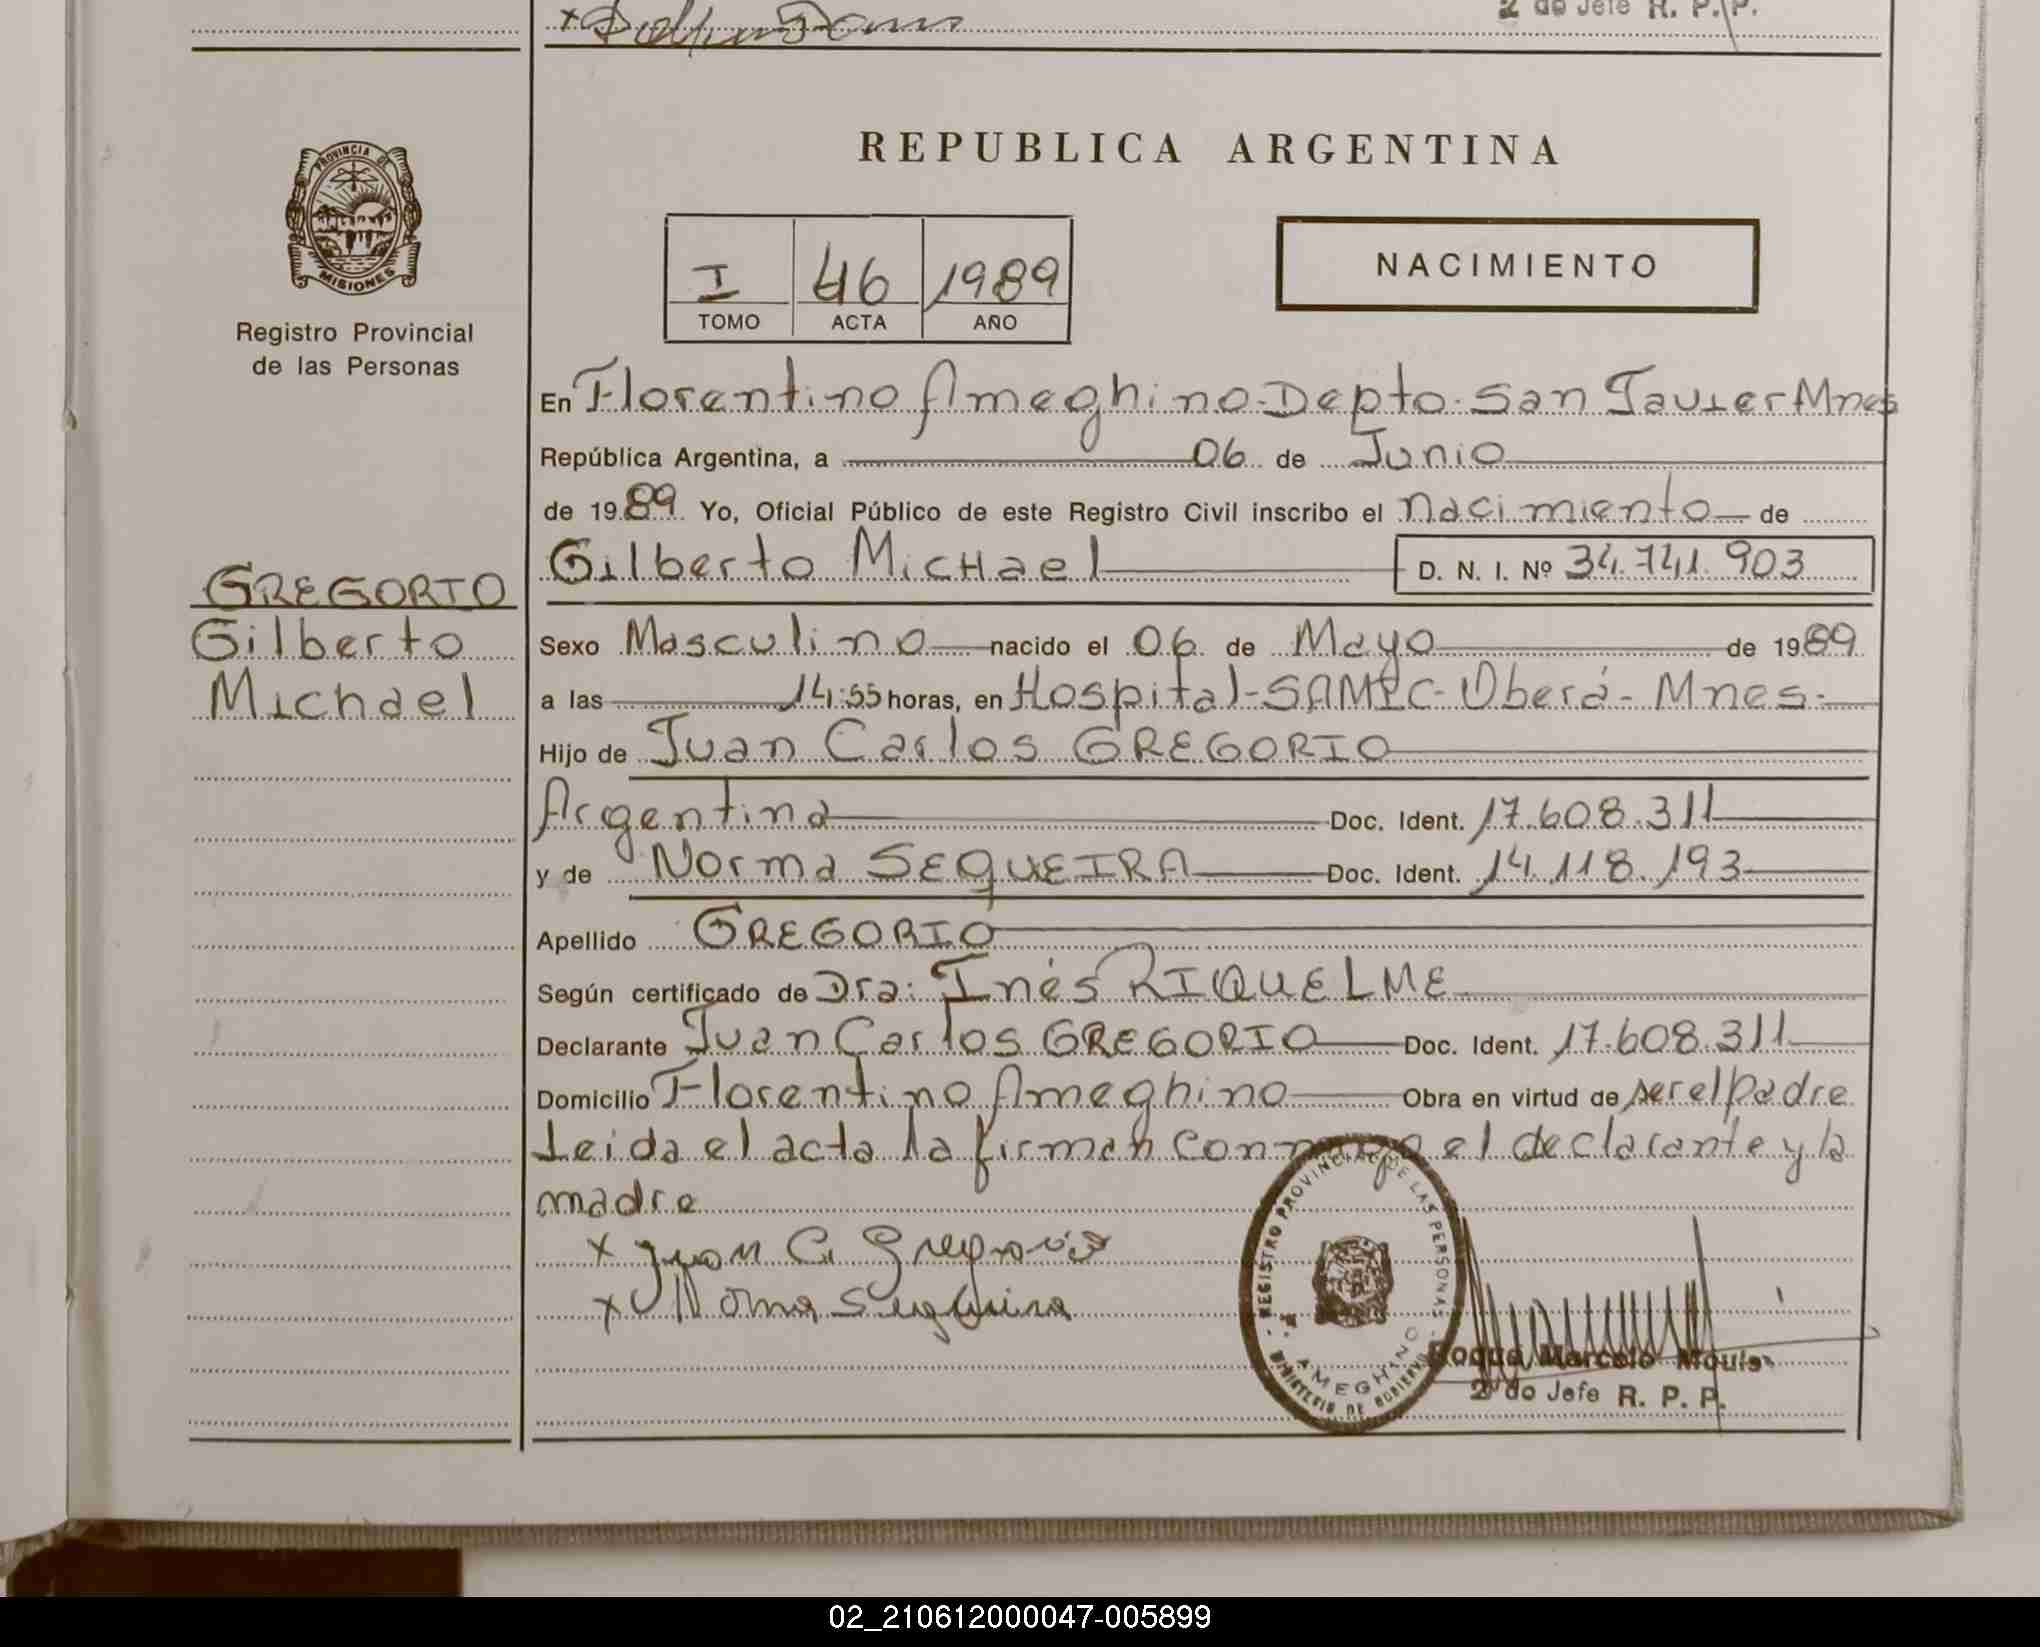 2 do Jefe R. P. P.
PROVINCIA DE
MISIONES
Registro Provincial
de las Personas
GREGORIO
Gilberto
Michael
REPUBLICA ARGENTINA
I 46 1989
TOMO ACTA AÑO
NACIMIENTO
En Florentino Ameghino-Depto. San Javier Mnes
República Argentina, a 06 de Junio
de 1989 Yo, Oficial Público de este Registro Civil inscribo el nacimiento de
Gilberto Michael D. N. I. Nº 34.741.903
Sexo Masculino nacido el 06 de Mayo de 1989
a las 14:55 horas, en Hospital-SAMIC-Oberá-Mnes.
Hijo de Juan Carlos GREGORIO
Argentina Doc. Ident. 17.608.311
y de Norma SEQUEIRA Doc. Ident. 14.118.193
Apellido GREGORIO
Según certificado de Dra: Inés RIQUELME
Declarante Juan Carlos GREGORIO Doc. Ident. 17.608.311
Domicilio Florentino Ameghino Obra en virtud de ser el padre
Leida el acta la firman conmigo el declarante y la
madre
x Juan C. Gregorio
x Norma Sequeira
REGISTRO PROVINCIAL DE LAS PERSONAS
AMEGHINO
MINISTERIO DE GOBIERNO
Roque Marcelo Mouls
2 do Jefe R. P. P.
02_210612000047-005899